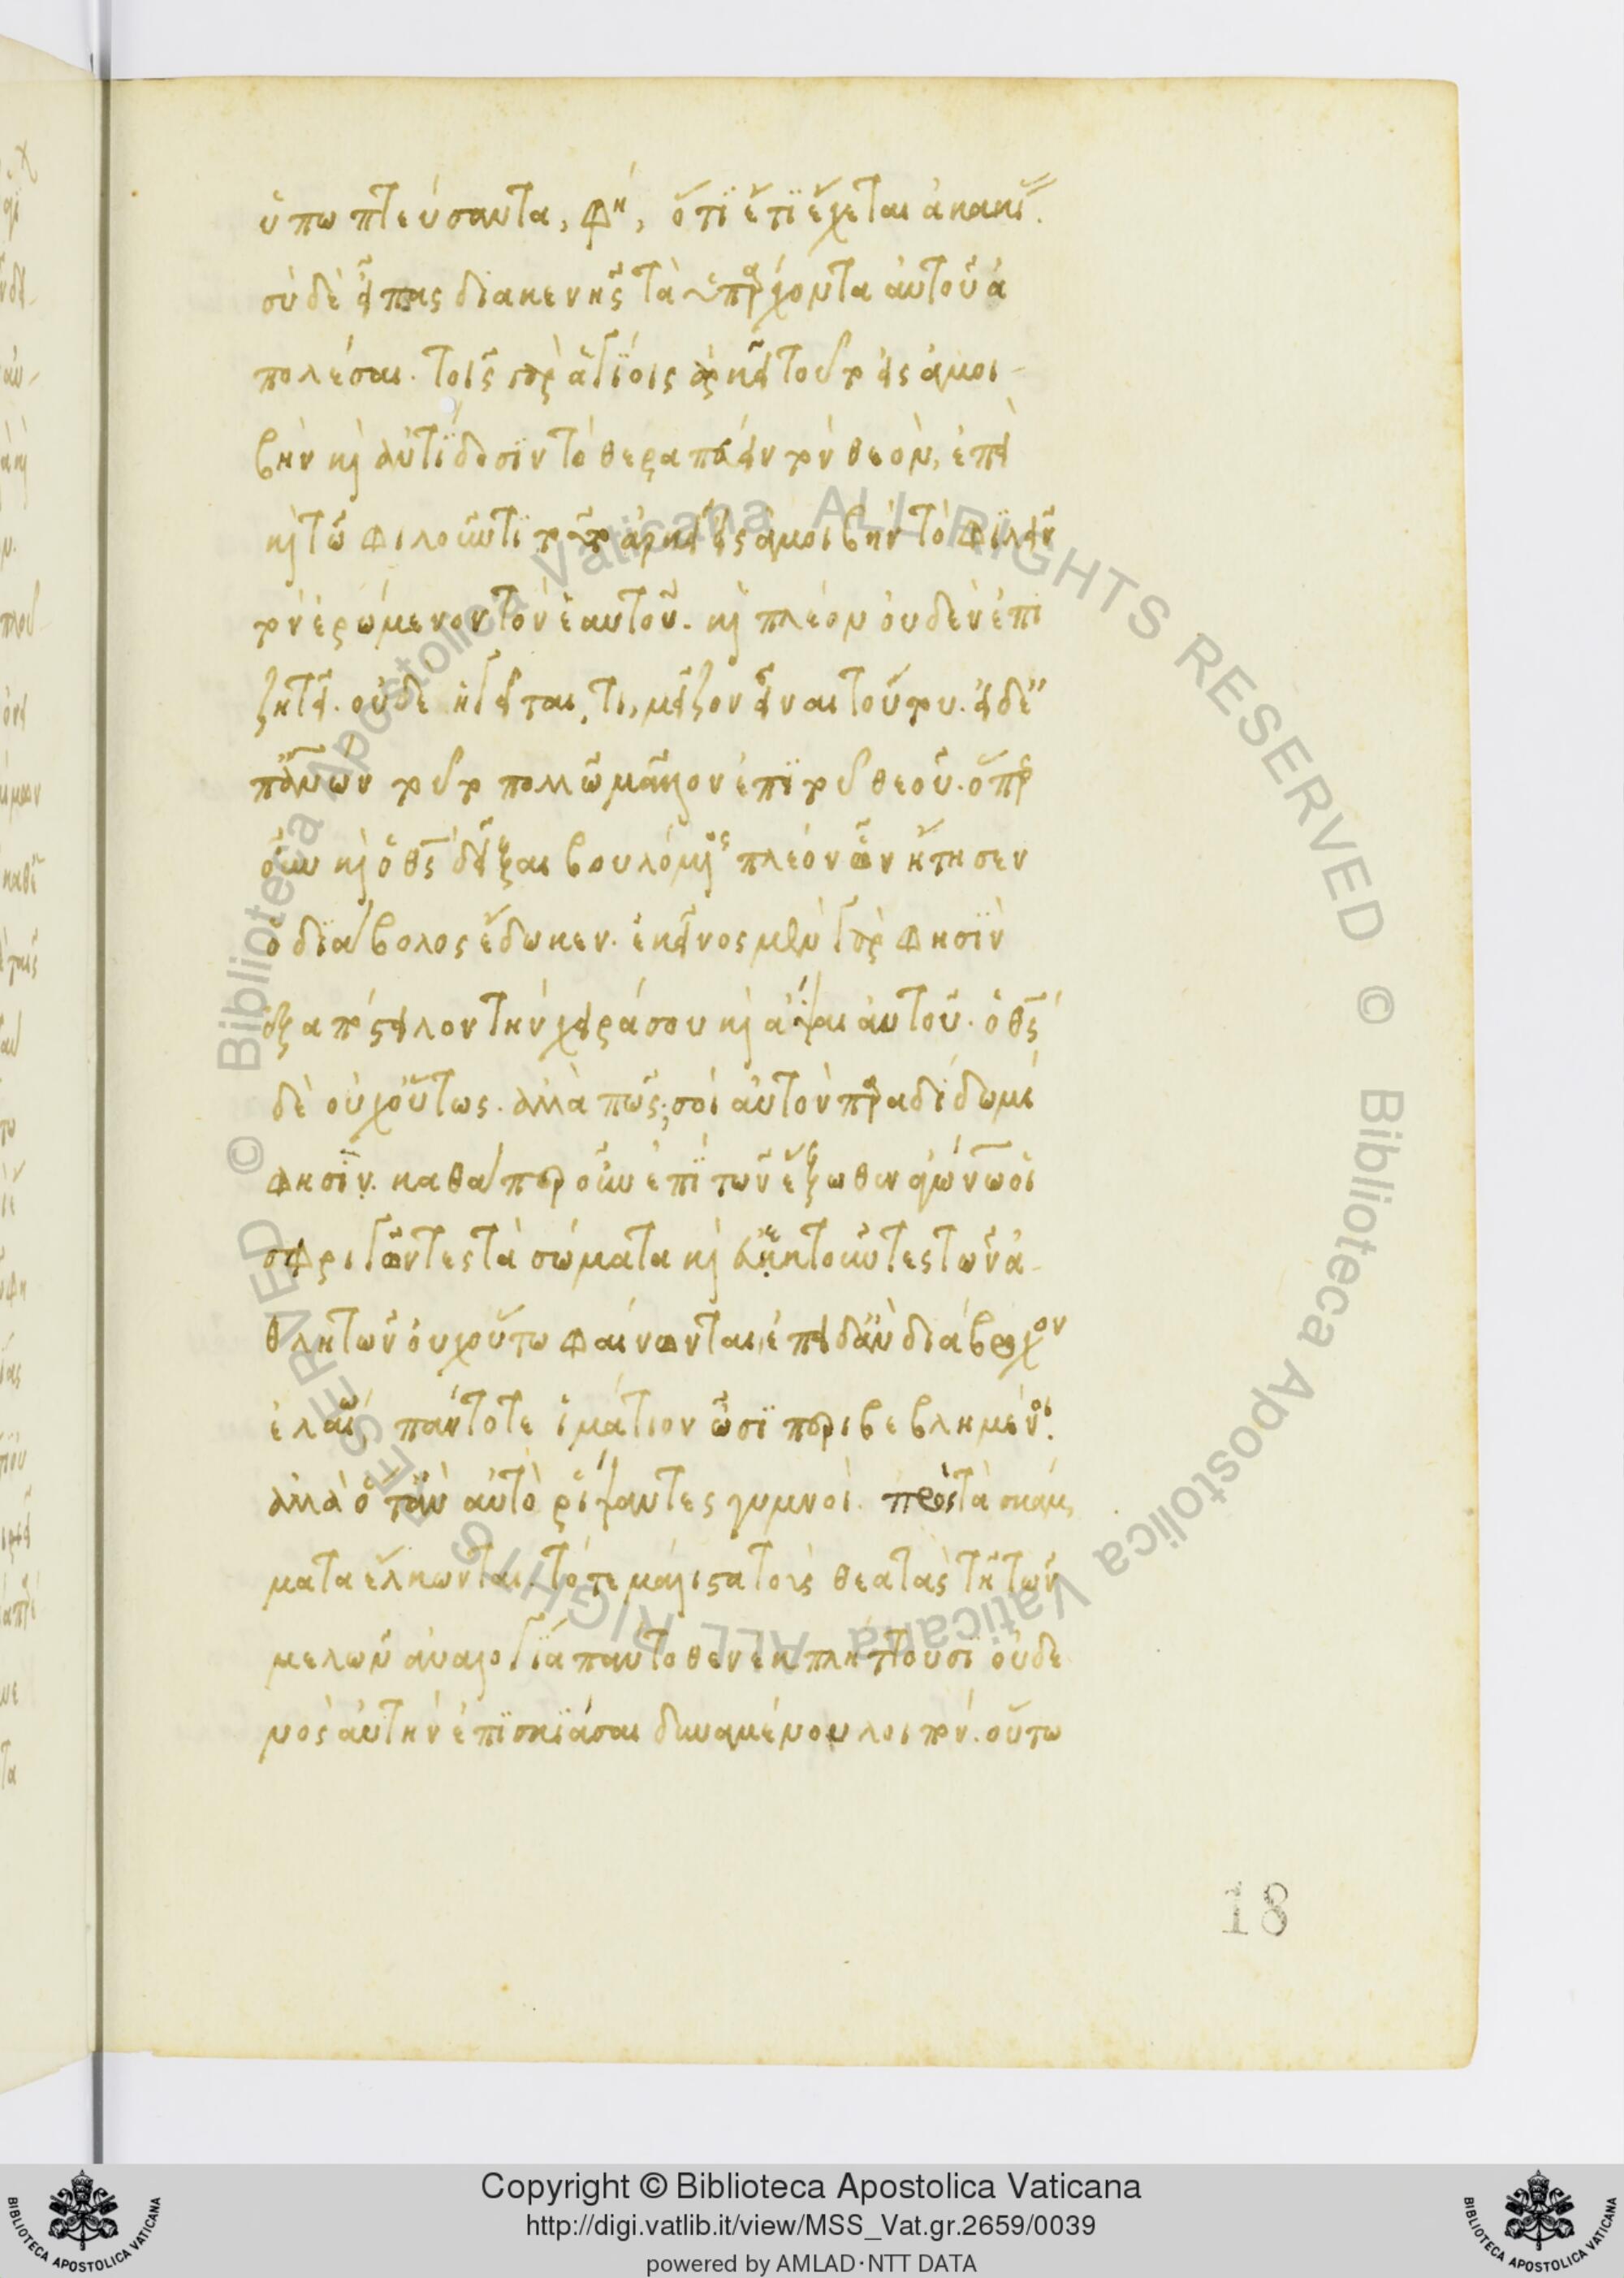 ὑποπτεύσαντα, φη, ὅτι ἔτι ἔχεται ἀκακί.
σὺ δὲ εἶπας διακενῆς τὰ ὑπάρχοντα αὐτοῦ ἀ
πολέσαι. τοῖς γὰρ ἀξίοις ἀρκεῖ τοῦτο εἰς ἀμοι-
βὴν καὶ ἀντίδοσιν τὸ θεραπεύειν τὸν θεὸν, ἐπεὶ
καὶ τῶ φιλοῦντι τοῦτο ἀρκεῖ εἰς ἀμοιβὴν τὸ φιλεῖν
τὸν ἐρώμενον τὸν ἑαυτοῦ. καὶ πλέον οὐδὲν ἐπι
ζητεῖ. οὐδὲ ἡγεῖται, τι, μεῖζον εἶναι τούτου. εἰ δὲ
τοῦτο πολλῶ μᾶλλον ἐπὶ τοῦ θεοῦ. ὅπερ
οὖν καὶ ὁ θς δεῖξαι βουλόμενος πλέον ὧν ἤτησεν
ὁ διάβολος ἔδωκεν. ἐκεῖνος μὲν γὰρ φησὶν
ἐξαπόστειλον τὴν χεῖρά σου καὶ ἅψαι αὐτοῦ. ὁ θς
δὲ οὐχ οὕτως. ἀλλὰ πῶς; σοὶ αὐτὸν παραδίδωμι
φησίν. καθάπερ οὖν ἐπὶ τῶν ἔξωθεν ἀγώνων οἱ
σφριγῶντες τὰ σώματα καὶ
θλητῶν οὐχ οὕτω φαίνονται, ἐπειδὰν διάβροχον
ἐλαίω πάντοτε ἱμάτιον ὦσι περιβεβλημένοι.
ἀλλὰ ὅταν αὐτὸ ῥίψαντες γυμνοὶ πρὸς τὰ σκάμ
ματα ἕλκωνται. τότε μάλιστα τοὺς θεατὰς τῆ τῶν
μελῶν ἀναλογία πάντοθεν ἐκπλήττουσι οὐδε
νὸς αὐτὴν ἐπισκιάσαι δυναμένου λοιπόν. οὕτω
18
Copyright © Biblioteca Apostolica Vaticana
http://digi.vatlib.it/view/MSS_Vat.gr.2659/0039
powered by AMLAD·NTT DATA
BIBLIOTECA APOSTOLICA VATICANA
BIBLIOTECA APOSTOLICA VATICANA
© Biblioteca Apostolica Vaticana ALL RIGHTS RESERVED
© Biblioteca Apostolica Vaticana ALL RIGHTS RESERVED